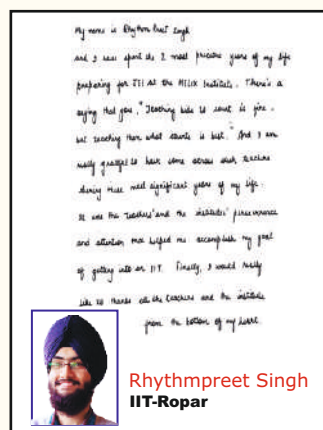 My name is Rhythm Preet Singh
and I have spent the 2 most precious years of my life
preparing for JEE at the HELIX Institute. There's a
saying that goes, "Teaching kids to count is fine,
but teaching them what counts is best." And I am
really grateful to have come across such teachers
during these most significant years of my life.
It was the teachers' and the institutes' perseverance
and attention that helped me accomplish my goal
of getting into an IIT. Finally, I would really
like to thank all the teachers and the institute
from the bottom of my heart.
Rhythmpreet Singh
IIT-Ropar